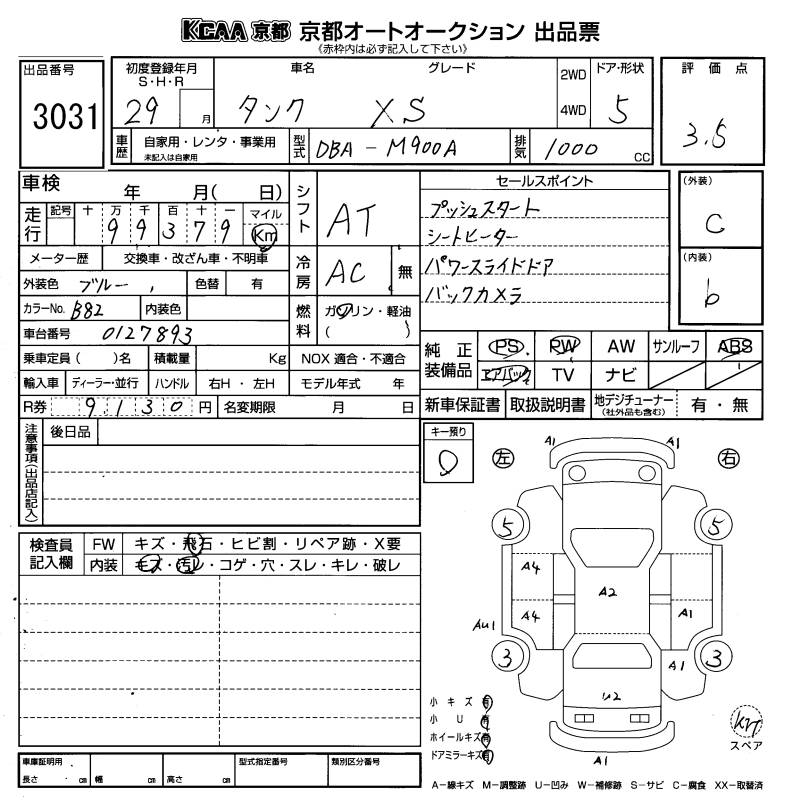 KCAA 京都 京都オートオークション 出品票
《赤枠内は必ず記入して下さい》
出品番号 3031
初度登録年月 S・H・R 29 月
車名 タンク
グレード XS
2WD 4WD
ドア・形状 5
評価点 3.5
車歴 自家用・レンタ・事業用 未記入は自家用
型式 DBA-M900A
排気 1000 CC
車検 年 月( 日)
走行 記号 十 万 千 百 十 一 マイル
9 9 3 7 9 Km
メーター歴 交換車・改ざん車・不明車
外装色 ブルー 色替 有
カラーNo. B82 内装色
車台番号 0127893
乗車定員 ( )名 積載量 Kg
輸入車 ディーラー・並行 ハンドル 右H・左H
R券 9130円 名変期限 月 日
シフト AT
冷房 AC 無
燃料 ガソリン・軽油
( )
NOX 適合・不適合
モデル年式 年
セールスポイント
プッシュスタート
シートヒーター
パワースライドドア
バックカメラ
(外装) C
(内装) b
純正装備品 PS PW AW サンルーフ ABS
エアバック TV ナビ
新車保証書 取扱説明書 地デジチューナー (社外品も含む) 有・無
注意事項(出品店記入)
後日品
キー預り 0
検査員記入欄
FW キズ・飛石・ヒビ割・リペア跡・X要
内装 キズ・汚レ・コゲ・穴・スレ・キレ・破レ
左 右
A1 A1
5 5
A4 A2
A4 A1
Au1
3 A1 3
U2
A1
小キズ 有
小U 有
ホイールキズ 有
ドアミラーキズ 有
スペア
車庫証明用 型式指定番号 類別区分番号
長さ cm 幅 cm 高さ cm
A-線キズ M-調整跡 U-凹み W-補修跡 S-サビ C-腐食 XX-取替済